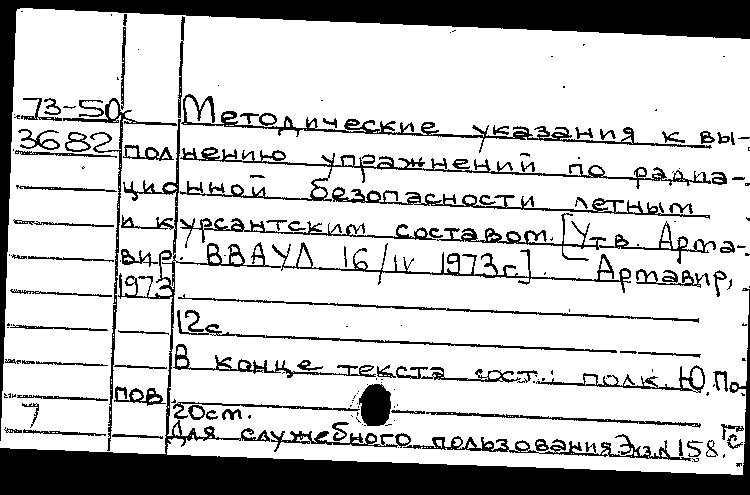 73-50с Методические указания к вы-
3682 полнению упражнений по радиа-
ционной безопасности летным
и курсантским составом. [Утв. Арма-
вир. ВВАУЛ 16/IV 1973г.] – Армавир,
1973
12с.
В конце текста сост.: полк. Ю. По-
пов
7 20см.
Для служебного пользования Экз. N 158. Гс